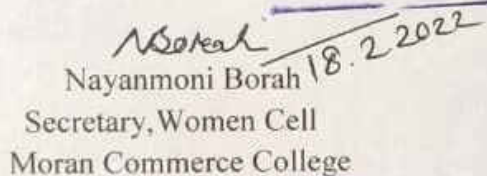 NBorah
18.2.2022
Nayanmoni Borah
Secretary, Women Cell
Moran Commerce College